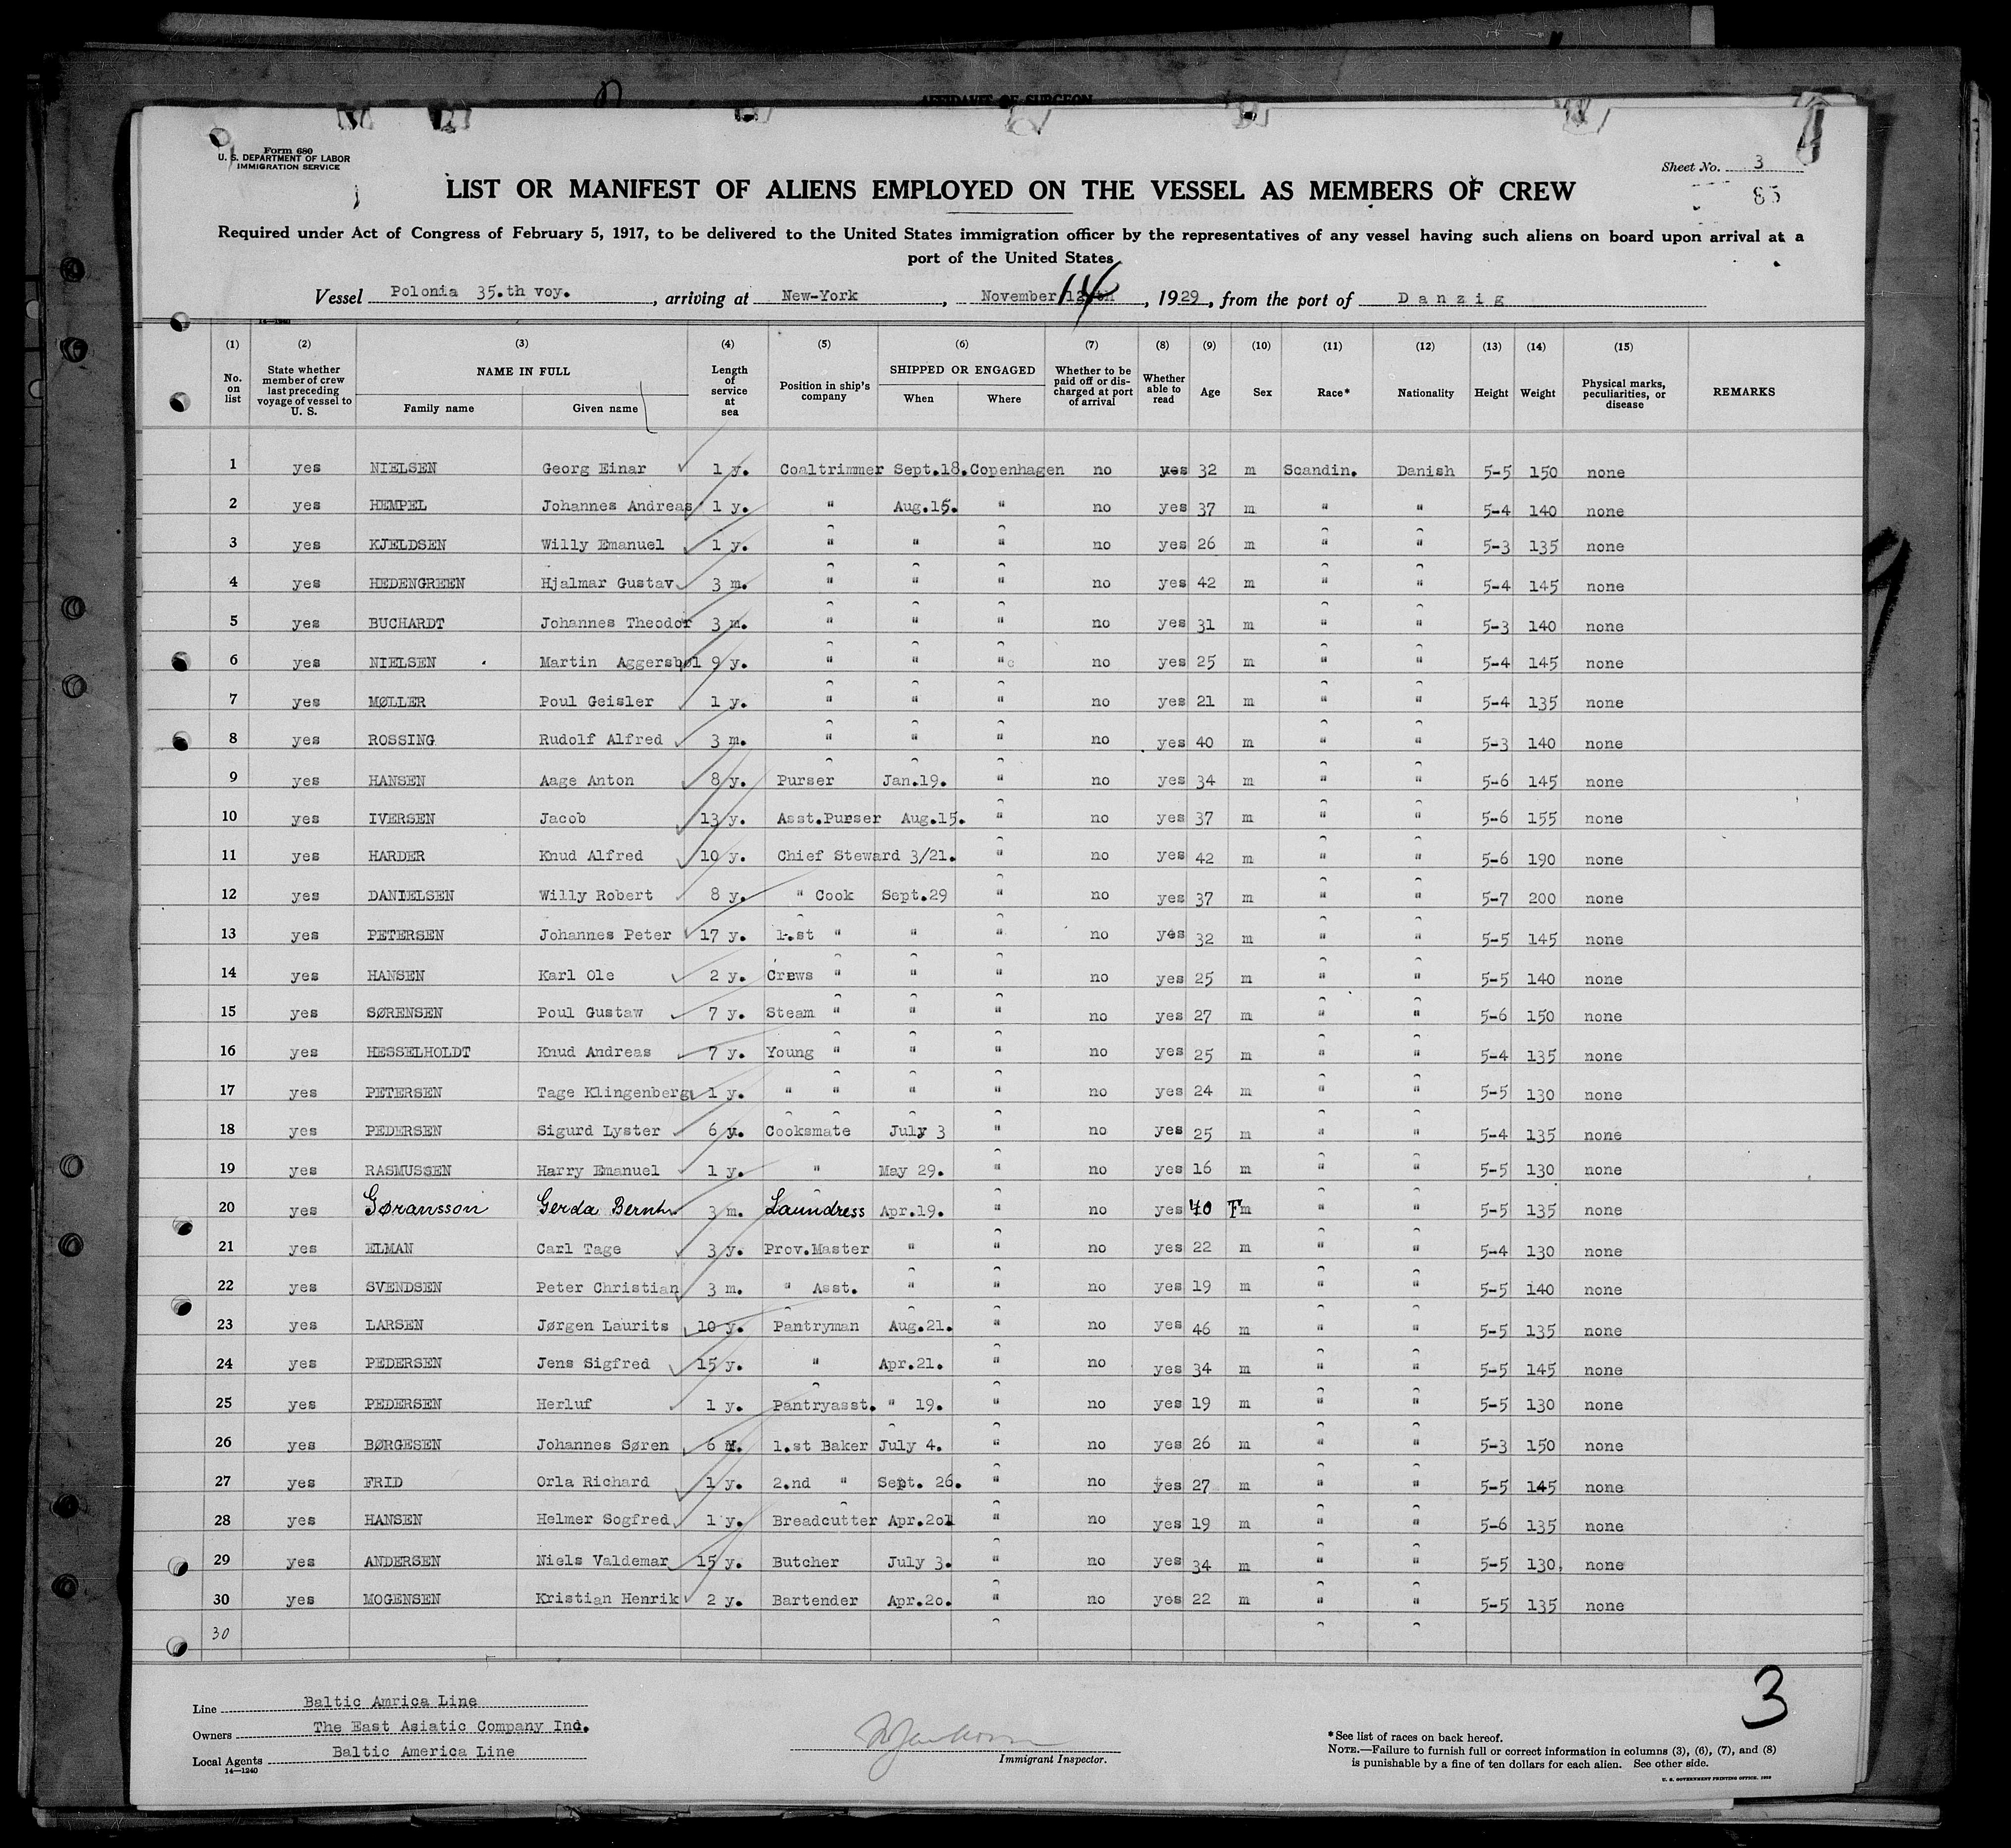 AFFIDAVIT OF SURGEON
Form 680
U. S. DEPARTMENT OF LABOR
IMMIGRATION SERVICE
Sheet No. 3
85
LIST OR MANIFEST OF ALIENS EMPLOYED ON THE VESSEL AS MEMBERS OF CREW
Required under Act of Congress of February 5, 1917, to be delivered to the United States immigration officer by the representatives of any vessel having such aliens on board upon arrival at a
port of the United States
Vessel Polonia 35.th voy., arriving at New-York, November 12th 14, 1929, from the port of Danzig
14—1240
(1) (2) (3) (4) (5) (6) (7) (8) (9) (10) (11) (12) (13) (14) (15)
No. on list State whether member of crew last preceding voyage of vessel to U. S. NAME IN FULL Length of service at sea Position in ship's company SHIPPED OR ENGAGED Whether to be paid off or discharged at port of arrival Whether able to read Age Sex Race* Nationality Height Weight Physical marks, peculiarities, or disease REMARKS
Family name Given name When Where
1 yes NIELSEN Georg Einar 1 y. Coaltrimmer Sept.18. Copenhagen no yes 32 m Scandin. Danish 5-5 150 none
2 yes HEMPEL Johannes Andreas 1 y. " Aug.15. " no yes 37 m " " 5-4 140 none
3 yes KJELDSEN Willy Emanuel 1 y. " " " no yes 26 m " " 5-3 135 none
4 yes HEDENGREEN Hjalmar Gustav 3 m. " " " no yes 42 m " " 5-4 145 none
5 yes BUCHARDT Johannes Theodor 3 m. " " " no yes 31 m " " 5-3 140 none
6 yes NIELSEN Martin Aggersbøl 9 y. " " " no yes 25 m " " 5-4 145 none
7 yes MØLLER Poul Geisler 1 y. " " " no yes 21 m " " 5-4 135 none
8 yes ROSSING Rudolf Alfred 3 m. " " " no yes 40 m " " 5-3 140 none
9 yes HANSEN Aage Anton 8 y. Purser Jan.19. " no yes 34 m " " 5-6 145 none
10 yes IVERSEN Jacob 13 y. Asst.Purser Aug.15. " no yes 37 m " " 5-6 155 none
11 yes HARDER Knud Alfred 10 y. Chief Steward 3/21. " no yes 42 m " " 5-6 190 none
12 yes DANIELSEN Willy Robert 8 y. " Cook Sept.29 " no yes 37 m " " 5-7 200 none
13 yes PETERSEN Johannes Peter 17 y. 1.st " " " no yes 32 m " " 5-5 145 none
14 yes HANSEN Karl Ole 2 y. Crews " " " no yes 25 m " " 5-5 140 none
15 yes SØRENSEN Poul Gustaw 7 y. Steam " " " no yes 27 m " " 5-6 150 none
16 yes HESSELHOLDT Knud Andreas 7 y. Young " " " no yes 25 m " " 5-4 135 none
17 yes PETERSEN Tage Klingenberg 1 y. " " " " no yes 24 m " " 5-5 130 none
18 yes PEDERSEN Sigurd Lyster 6 y. Cooksmate July 3 " no yes 25 m " " 5-4 135 none
19 yes RASMUSSEN Harry Emanuel 1 y. " May 29. " no yes 16 m " " 5-5 130 none
20 yes Gøransson Gerda Bernh 3 m. Laundress Apr.19. " no yes 40 Fm " " 5-5 135 none
21 yes ELMAN Carl Tage 3 y. Prov.Master " " no yes 22 m " " 5-4 130 none
22 yes SVENDSEN Peter Christian 3 m. " Asst. " " no yes 19 m " " 5-5 140 none
23 yes LARSEN Jørgen Laurits 10 y. Pantryman Aug.21. " no yes 46 m " " 5-5 135 none
24 yes PEDERSEN Jens Sigfred 15 y. " Apr.21. " no yes 34 m " " 5-5 145 none
25 yes PEDERSEN Herluf 1 y. Pantryasst. " 19. " no yes 19 m " " 5-5 130 none
26 yes BØRGESEN Johannes Søren 6 M. 1.st Baker July 4. " no yes 26 m " " 5-3 150 none
27 yes FRID Orla Richard 1 y. 2.nd " Sept. 26. " no yes 27 m " " 5-5 145 none
28 yes HANSEN Helmer Sogfred 1 y. Breadcutter Apr.20 " no yes 19 m " " 5-6 135 none
29 yes ANDERSEN Niels Valdemar 15 y. Butcher July 3. " no yes 34 m " " 5-5 130 none
30 yes MOGENSEN Kristian Henrik 2 y. Bartender Apr.20. " no yes 22 m " " 5-5 135 none
30
3
Line Baltic Amrica Line
Owners The East Asiatic Company Ind.
Local Agents Baltic America Line
14—1240
Immigrant Inspector.
*See list of races on back hereof.
NOTE.—Failure to furnish full or correct information in columns (3), (6), (7), and (8)
is punishable by a fine of ten dollars for each alien. See other side.
U. S. GOVERNMENT PRINTING OFFICE. 1929